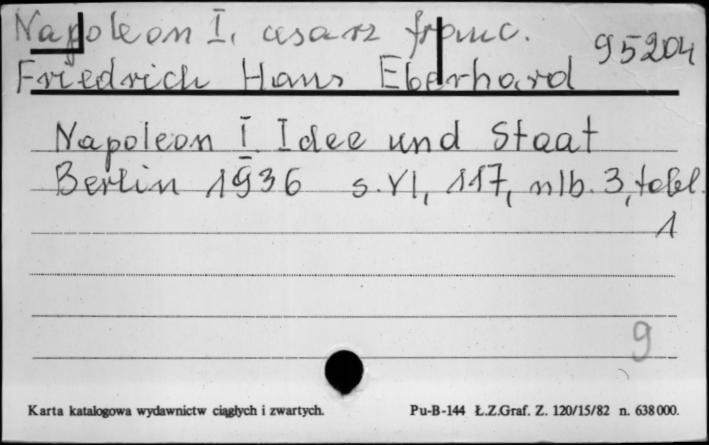 Napoleon I, cesarz franc.
95204
Friedrich Hans Eberhard
Napoleon I Idee und Staat
Berlin 1936 s. VI, 117, nlb. 3, tabl.
1
9
Karta katalogowa wydawnictw ciągłych i zwartych. Pu-B-144 Ł.Z.Graf. Z. 120/15/82 n. 638000.